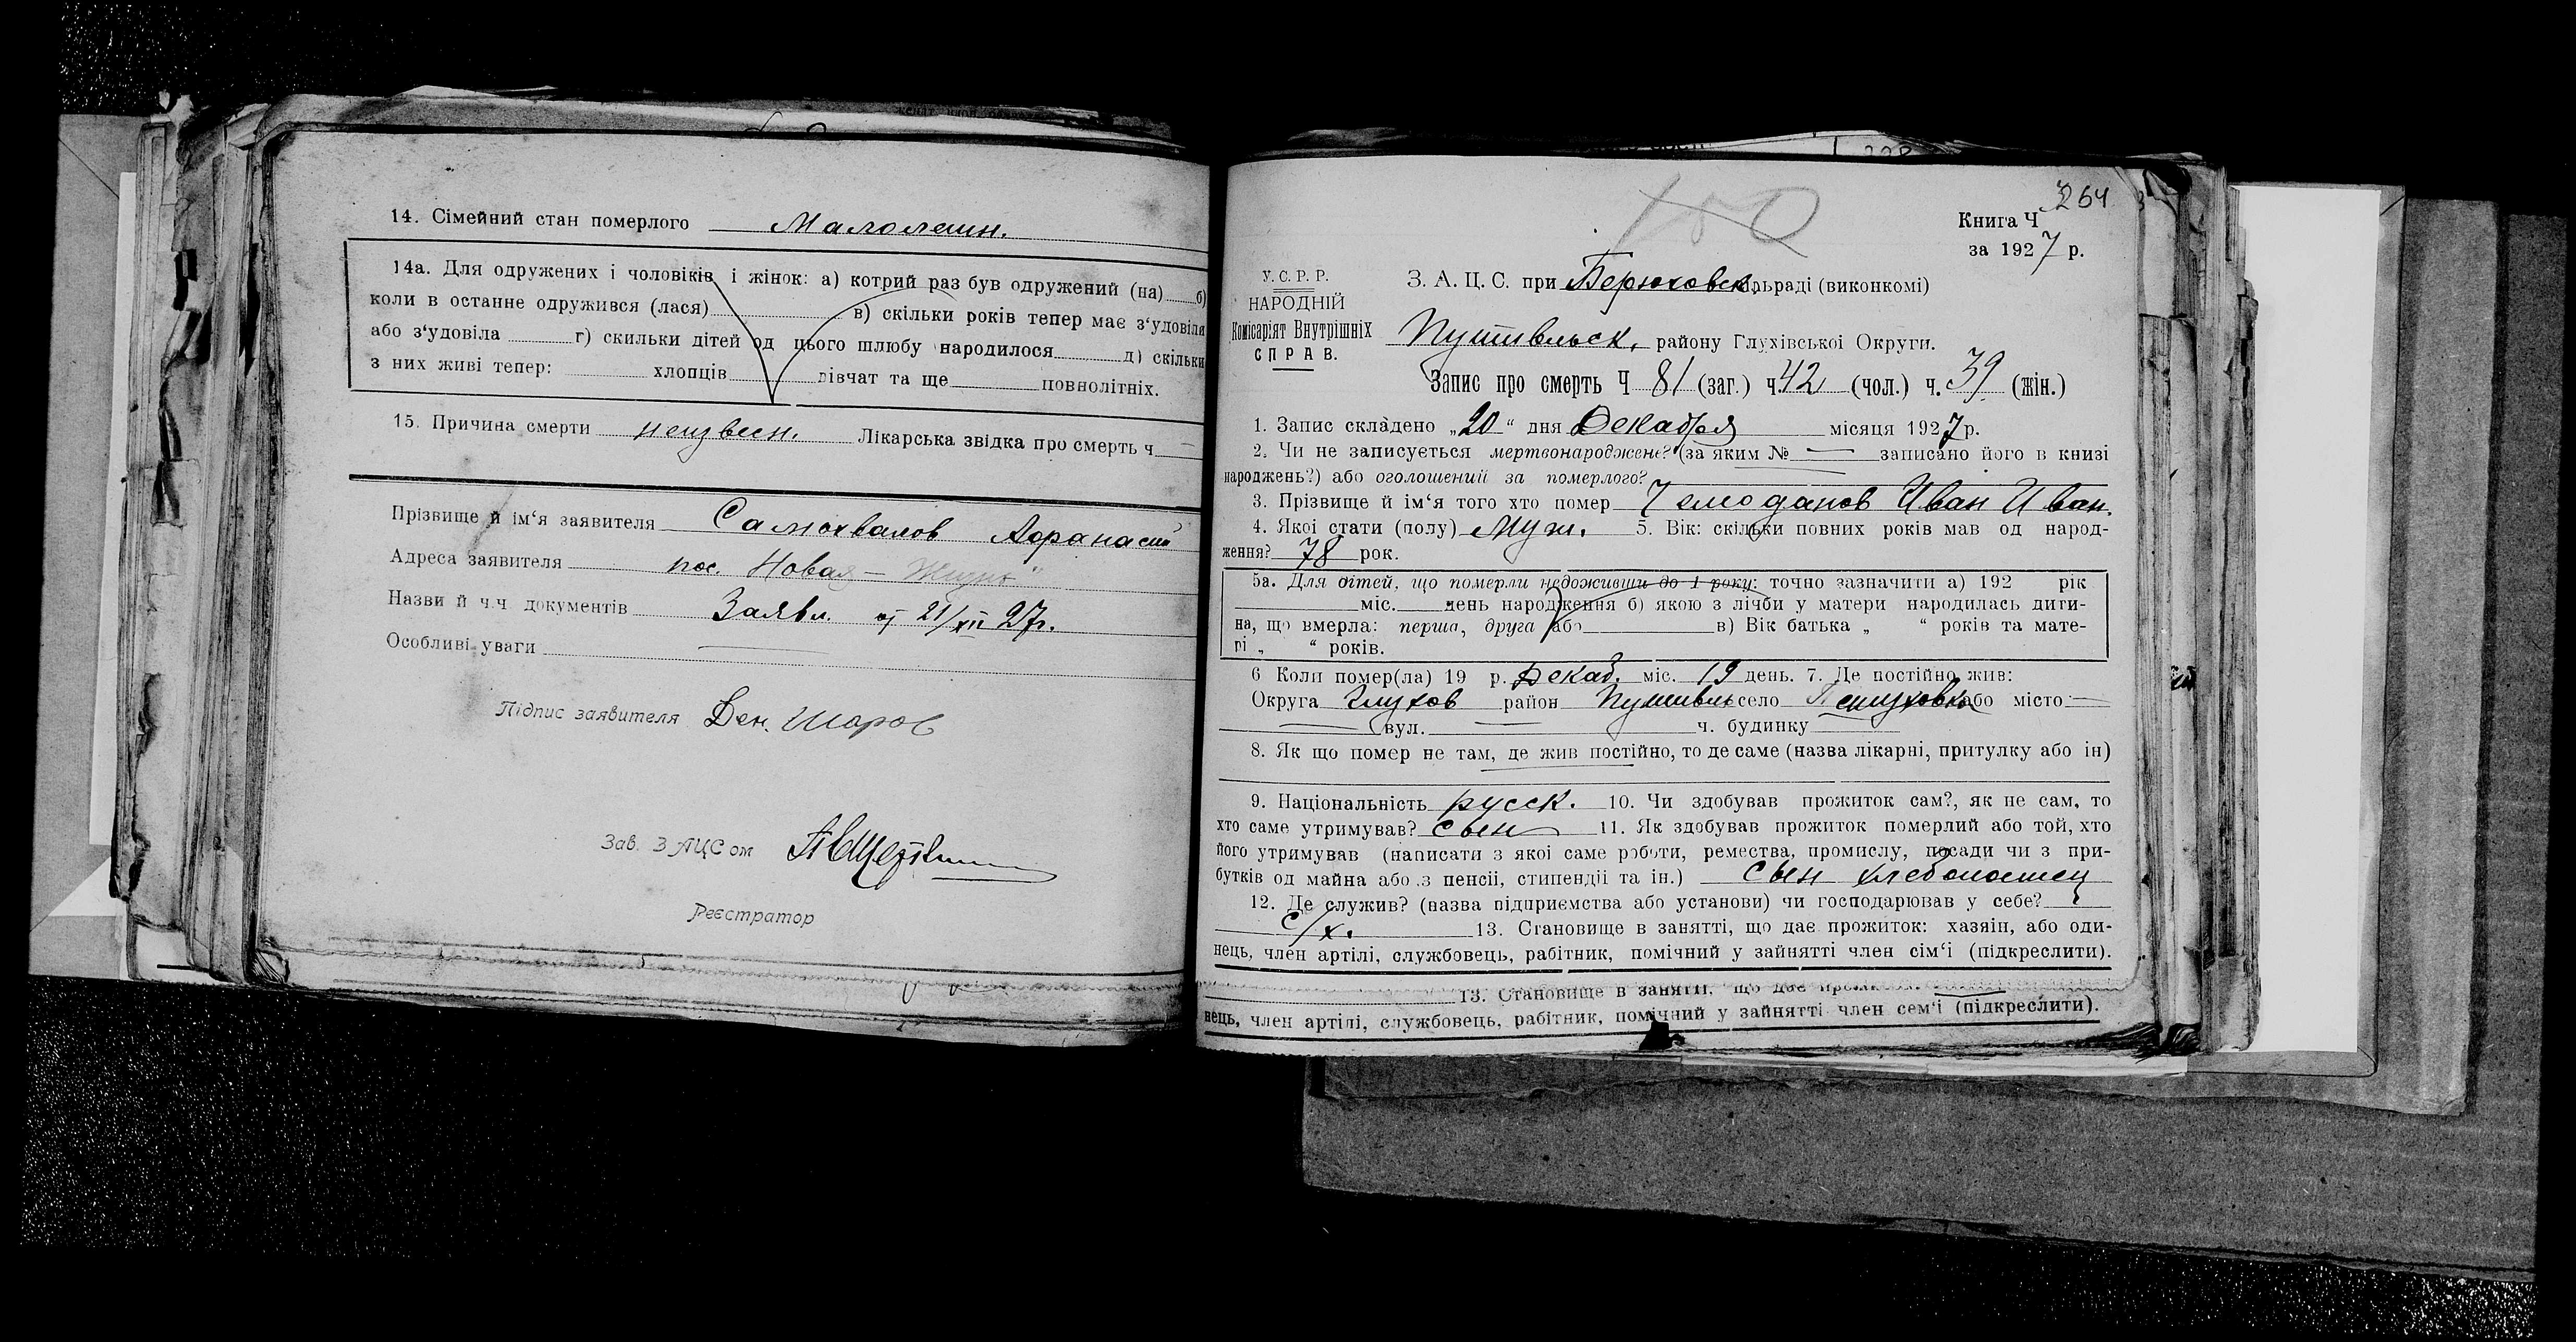 14. Сімейний стан померлого Малолетн.
14а. Для одружених і чоловіків і жінок: а) котрий раз був одружений (на) б)
коли в останне одружився (лася) в) скільки років тепер має з‘удовіла
або з‘удовіла г) скильки дітей од цього шлюбу народилося д) скільки
з них живі тепер: хлопців дівчат та ще повнолітніх.
15. Причина смерти неизвестн. Лікарська звідка про смерть ч —
Прізвище й ім‘я заявителя Самохвалов Афанасий
Адреса заявителя пос. Новая — Жизнь"
Назви й ч.ч документів Заявл. от 21/XII 27г.
Особливі уваги —
Підпис заявителя Ден. Шаров
Зав. ЗАЦСом
Реєстратор
264
150
Книга Ч
за 1927 р.
У. С. Р. Р.
НАРОДНІЙ
Комісаріят Внутрішніх
СПРАВ.
З. А. Ц. С. при Берюховск. сільраді (виконкомі)
Путивльск. району Глухівської Округи.
Запис про смерть Ч 81 (заг.) ч. 42 (чол.) ч. 39 (жін.)
1. Запис складено „20“ дня Декабря місяця 1927 р.
2. Чи не записується мертвонароджене? (за яким № — записано його в книзі
народжень?) або оголошений за померлого?
3. Прізвище й ім‘я того хто помер Чемоданов Иван Иван.
4. Якої стати (полу) Муж. 5. Вік: скільки повних років мав од народ-
ження? 78 рок.
5а. Для дітей, що померли недоживши до 1 року: точно зазначити а) 192 рік
міс. день народження б) якою з лічби у матери народилась дити-
на, що вмерла: перша, друга або в) Вік батька „ “ років та мате-
рі „ “ років.
6 Коли помер(ла) 19 р. Декаб. міс. 19 день. 7. Де постійно жив:
Округа Глухов район Путивль село або місто —
вул. ч. будинку
8. Як що помер не там, де жив постійно, то де саме (назва лікарні, притулку або ін)
9. Національність русск. 10. Чи здобував прожиток сам?, як не сам, то
хто саме утримував? сын 11. Як здобував прожиток померлий або той, хто
його утримував (написати з якої саме роботи, ремества, промислу, посади чи з при-
бутків од майна або з пенсії, стипендії та ін.) сын хлебопашец
12. Де служив? (назва підприємства або установи) чи господарював у себе?
с/х. 13. Становище в занятті, що дає прожиток: хазяін, або оди-
нець, член артілі, службовець, рабітник, помічний у зайнятті член сім‘і (підкреслити).
13. Становище в занятті, що дає
нець, член артілі, службовець, рабітник, помічний у зайнятті член сем‘і (підкреслити).